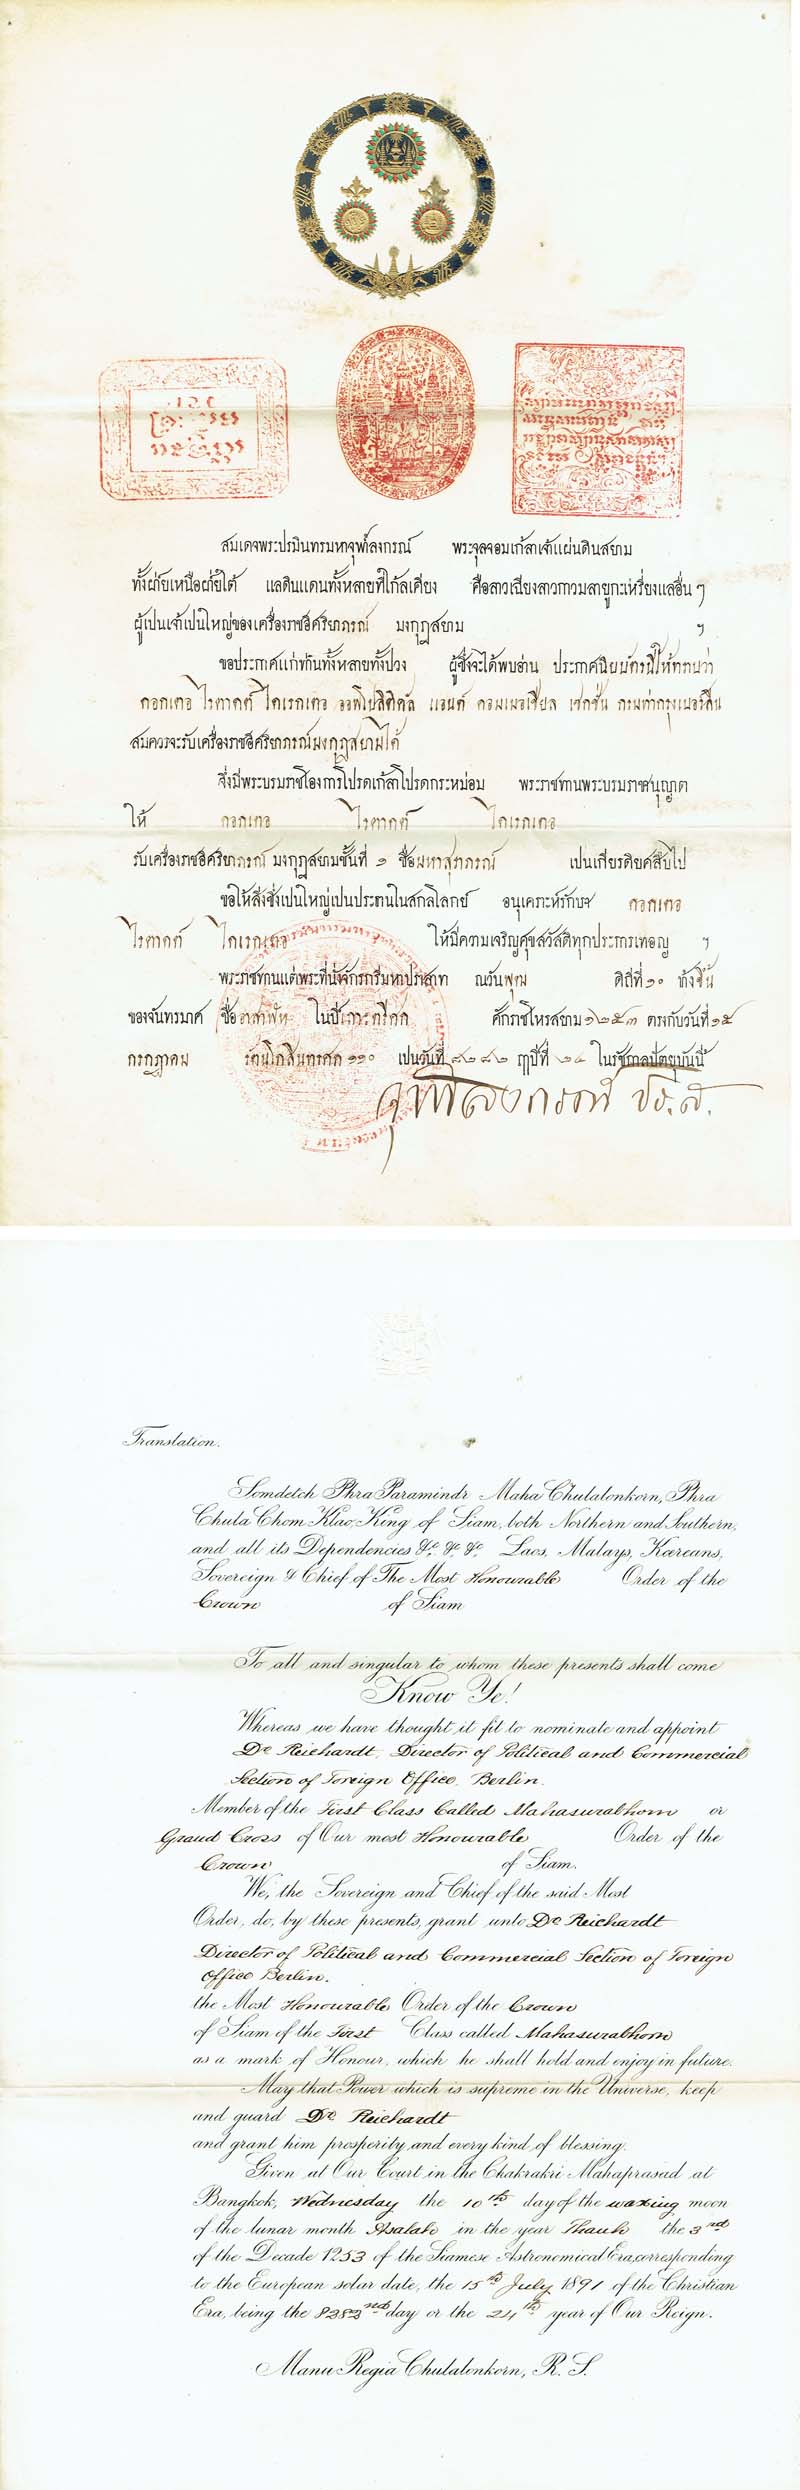 สมเดจพระปรมินทรมหาจุฬาลงกรณ์ พระจุลจอมเกล้าเจ้าแผ่นดินสยาม
ทั้งฝ่ายเหนือฝ่ายใต้ แลดินแดนทั้งหลายที่ใกล้เคียง คือลาวเฉียงลาวกาวมลายูกะเหรี่ยงแลอื่น ๆ
ผู้เปนเจ้าเปนใหญ่ของเครื่องราชอิศริยาภรณ์ มงกุฎสยาม ฯ
ขอประกาศแก่ท่านทั้งหลายทั้งปวง ผู้ซึ่งจะได้พบอ่าน ประกาศนิยบัตรนี้ให้ทราบว่า
ดอกเตอ ไรตาดต์ ไดเรกเตอ ออฟโปลิติคัล แอนด์ คอมเมอเชียล เซกชั่น กรมท่ากรุงเบอร์ลิน
สมควรจะรับเครื่องราชอิศริยาภรณ์มงกุฎสยามได้
จึ่งมีพระบรมราชโองการโปรดเกล้าโปรดกระหม่อม พระราชทานพระบรมราชานุญาต
ให้ ดอกเตอ ไรตาดต์ ไดเรกเตอ
รับเครื่องราชอิศริยาภรณ์ มงกุฎสยามชั้นที่ ๑ ชื่อมหาสุราภรณ์ เปนเกียรติยศสืบไป
ขอให้สิ่งซึ่งเปนใหญ่เปนประธานในสกลโลกย์ อนุเคราะห์รักษา ดอกเตอ
ไรตาดต์ ไดเรกเตอ ให้มีความเจริญศุขสวัสดิทุกประการเทอญ ฯ
พระราชทานแต่พระที่นั่งจักรกรีมหาปราสาท ณวันพุฒ ดิถีที่ ๑๐ ข้างขึ้น
ของจันทรมาศ ชื่ออาสาฬห ในปีเถาะตรีศก ศักราชโหรสยาม ๑๒๕๓ ตรงกับวันที่ ๑๕
กรกฎาคม รัตนโกสินทรศก ๑๑๐ เปนวันที่ ๘๒๘๒ ฤๅปีที่ ๒๔ ในรัชกาลปัตยุบันนี้
จุฬาลงกรณ์ ปร.ส.
Translation.
Somdetch Phra Paramindr Maha Chulalonkorn, Phra
Chula Chom Klao, King of Siam, both Northern and Southern,
and all its Dependencies &c. &c. &c. Laos, Malays, Kareans,
Sovereign & Chief of The Most Honourable Order of the
Crown of Siam
To all and singular to whom these presents shall come
Know Ye!
Whereas we have thought it fit to nominate and appoint
Dr. Reichardt, Director of Political and Commercial
Section of Foreign Office Berlin.
Member of the First Class Called Mahasurabhorn or
Grand Cross of Our most Honourable Order of the
Crown of Siam.
We, the Sovereign and Chief of the said Most
Order, do, by these presents, grant unto Dr. Reichardt
Director of Political and Commercial Section of Foreign
Office Berlin.
the Most Honourable Order of the Crown
of Siam of the First Class called Mahasurabhorn
as a mark of Honour, which he shall hold and enjoy in future.
May that Power which is supreme in the Universe, keep
and guard Dr. Reichardt
and grant him prosperity and every kind of blessing.
Given at Our Court in the Chakrakri Mahaprasad at
Bangkok, Wednesday the 10th day of the waxing moon
of the lunar month Asalah in the year Thauh the 3rd
of the Decade 1253 of the Siamese Astronomical Era, corresponding
to the European solar date, the 15th July 1891 of the Christian
Era, being the 8282nd day or the 24th year of Our Reign.
Manu Regia Chulalonkorn, R. S.